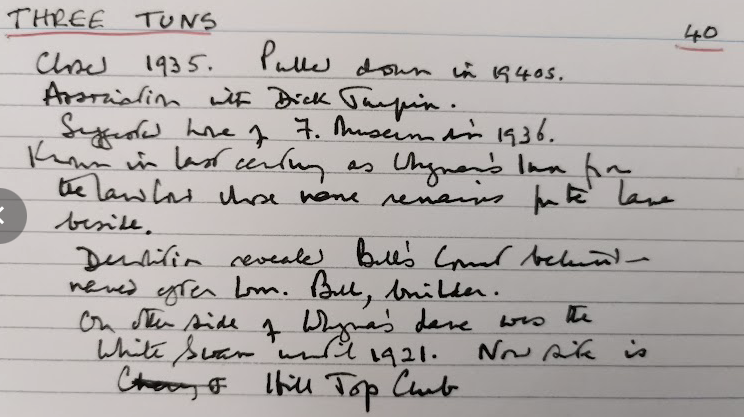 THREE TUNS
40
Closed 1935. Pulled down in 1940s.
Association with Dick Turpin.
Suggested home of F. Museum in 1936.
Known in last century as Whyman's Inn from
the landlord whose name remains for the lane
beside.
Demolition revealed Bull's Court behind -
named after Wm. Bull, builder.
On other side of Whyman's Lane was the
White Swan until 1921. Now site is
Hill Top Club